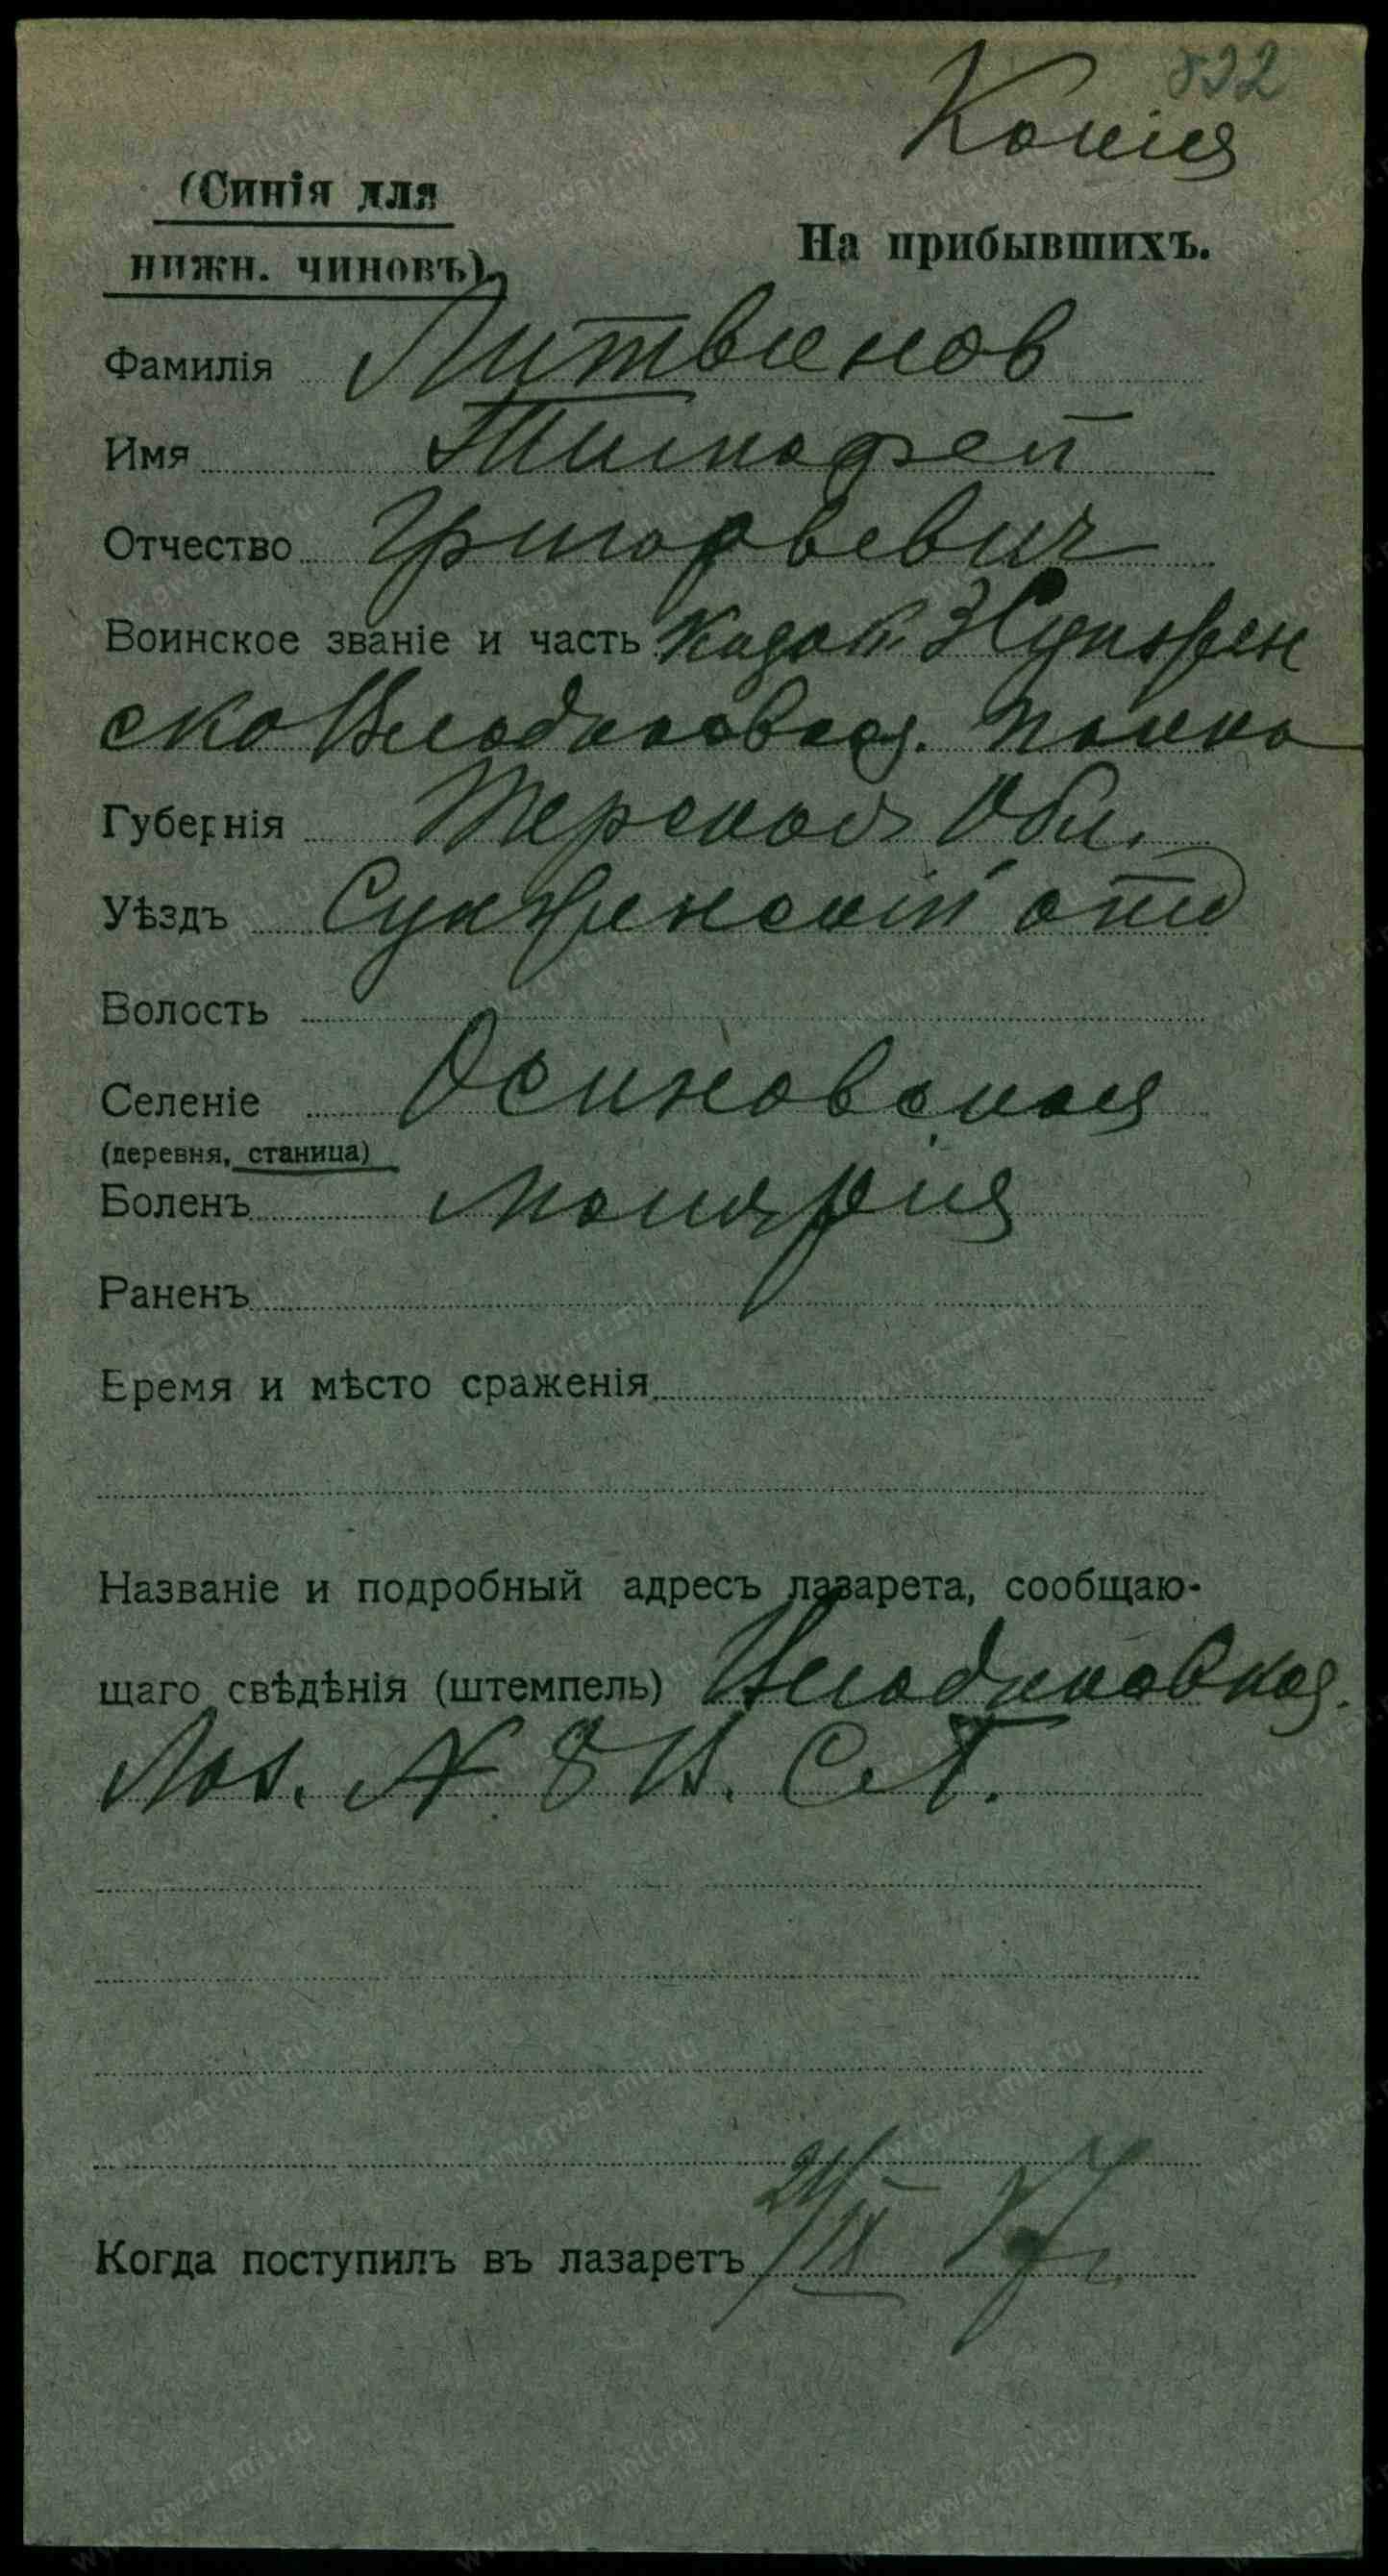 832
Копия
(Синія для
нижн. чиновъ).
На прибывшихъ.
Фамилія Литвинов
Имя Тимофей
Отчество Григорьевич
Воинское званіе и часть Казак 3 Сунжен
ско Владикавказ. полка
Губернія Терской Обл.
Уѣздъ Сунженскій отд
Волость
Селеніе Осиновская
(деревня, станица)
Боленъ Малярия
Раненъ
Время и мѣсто сраженія
Названіе и подробный адресъ лазарета, сообщаю-
щаго свѣдѣнія (штемпель) Владикавказ.
Лаз. № 8 В. С. Г.
Когда поступилъ въ лазаретъ 21/IX 17 г.